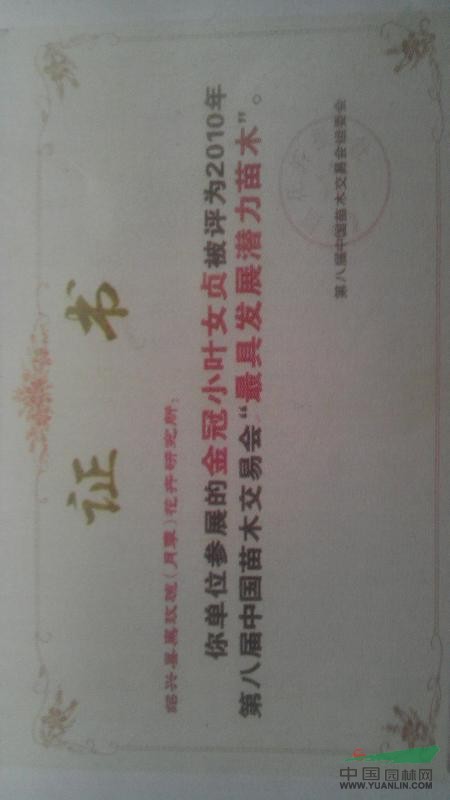 证 书
绍兴县属玫瑰（月季）花卉研究所：
你单位参展的金冠小叶女贞被评为2010年
第八届中国苗木交易会“最具发展潜力苗木”。
第八届中国苗木交易会组委会
中国园林网
WWW.YUANLIN.COM